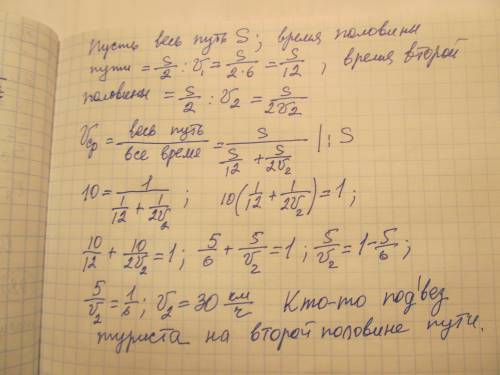 Пусть весь путь S; время половины
пути = S/2 : V₁ = S/(2·6) = S/12 , время второй
половины = S/2 : V₂ = S/(2V₂)
Vср = весь путь/все время = S/(S/12 + S/(2V₂)) |: S
10 = 1/(1/12 + 1/(2V₂)) ; 10(1/12 + 1/(2V₂)) = 1 ;
10/12 + 10/(2V₂) = 1 ; 5/6 + 5/V₂ = 1 ; 5/V₂ = 1 - 5/6 ;
5/V₂ = 1/6 ; V₂ = 30 км/ч Кто-то подвез
туриста на второй половине пути.